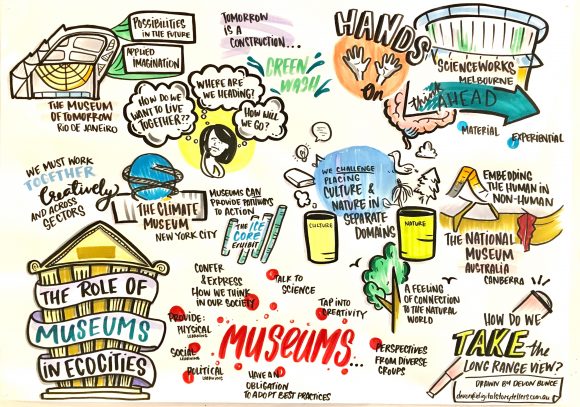 POSSIBILITIES
IN THE FUTURE
APPLIED
IMAGINATION
THE MUSEUM
OF TOMORROW
RIO DE JANEIRO
TOMORROW
IS A
CONSTRUCTION...
GREEN
WASH
HOW DO WE
WANT TO LIVE
TOGETHER??
WHERE ARE
WE HEADING?
HOW WILL
WE GO?
HANDS
On
SCIENCEWORKS
MELBOURNE
think
AHEAD
MATERIAL
EXPERIENTIAL
WE MUST WORK
TOGETHER
Creatively
AND ACROSS
SECTORS
THE CLIMATE
MUSEUM
NEW YORK CITY
MUSEUMS CAN
PROVIDE PATHWAYS
TO ACTION
THE ICE
CORE
EXHIBIT
WE CHALLENGE
PLACING
CULTURE &
NATURE IN
SEPARATE
DOMAINS
CULTURE
NATURE
EMBEDDING
THE HUMAN IN
NON-HUMAN
THE NATIONAL
MUSEUM
AUSTRALIA
CANBERRA
THE ROLE OF
MUSEUMS
IN ECOCITIES
CONFER
& EXPRESS
HOW WE THINK
IN OUR SOCIETY
TALK TO
SCIENCE
TAP INTO
CREATIVITY
PROVIDE:
PHYSICAL
LEARNING
SOCIAL
LEARNING
POLITICAL
LEARNING
MUSEUMS...
HAVE AN
OBLIGATION
TO ADOPT BEST PRACTICES
PERSPECTIVES
FROM DIVERSE
GROUPS
A FEELING
OF CONNECTION
TO THE NATURAL
WORLD
HOW DO WE
TAKE the
LONG RANGE VIEW?
DRAWN BY DEVON BUNCE
devon@digitalstorytellers.com.au